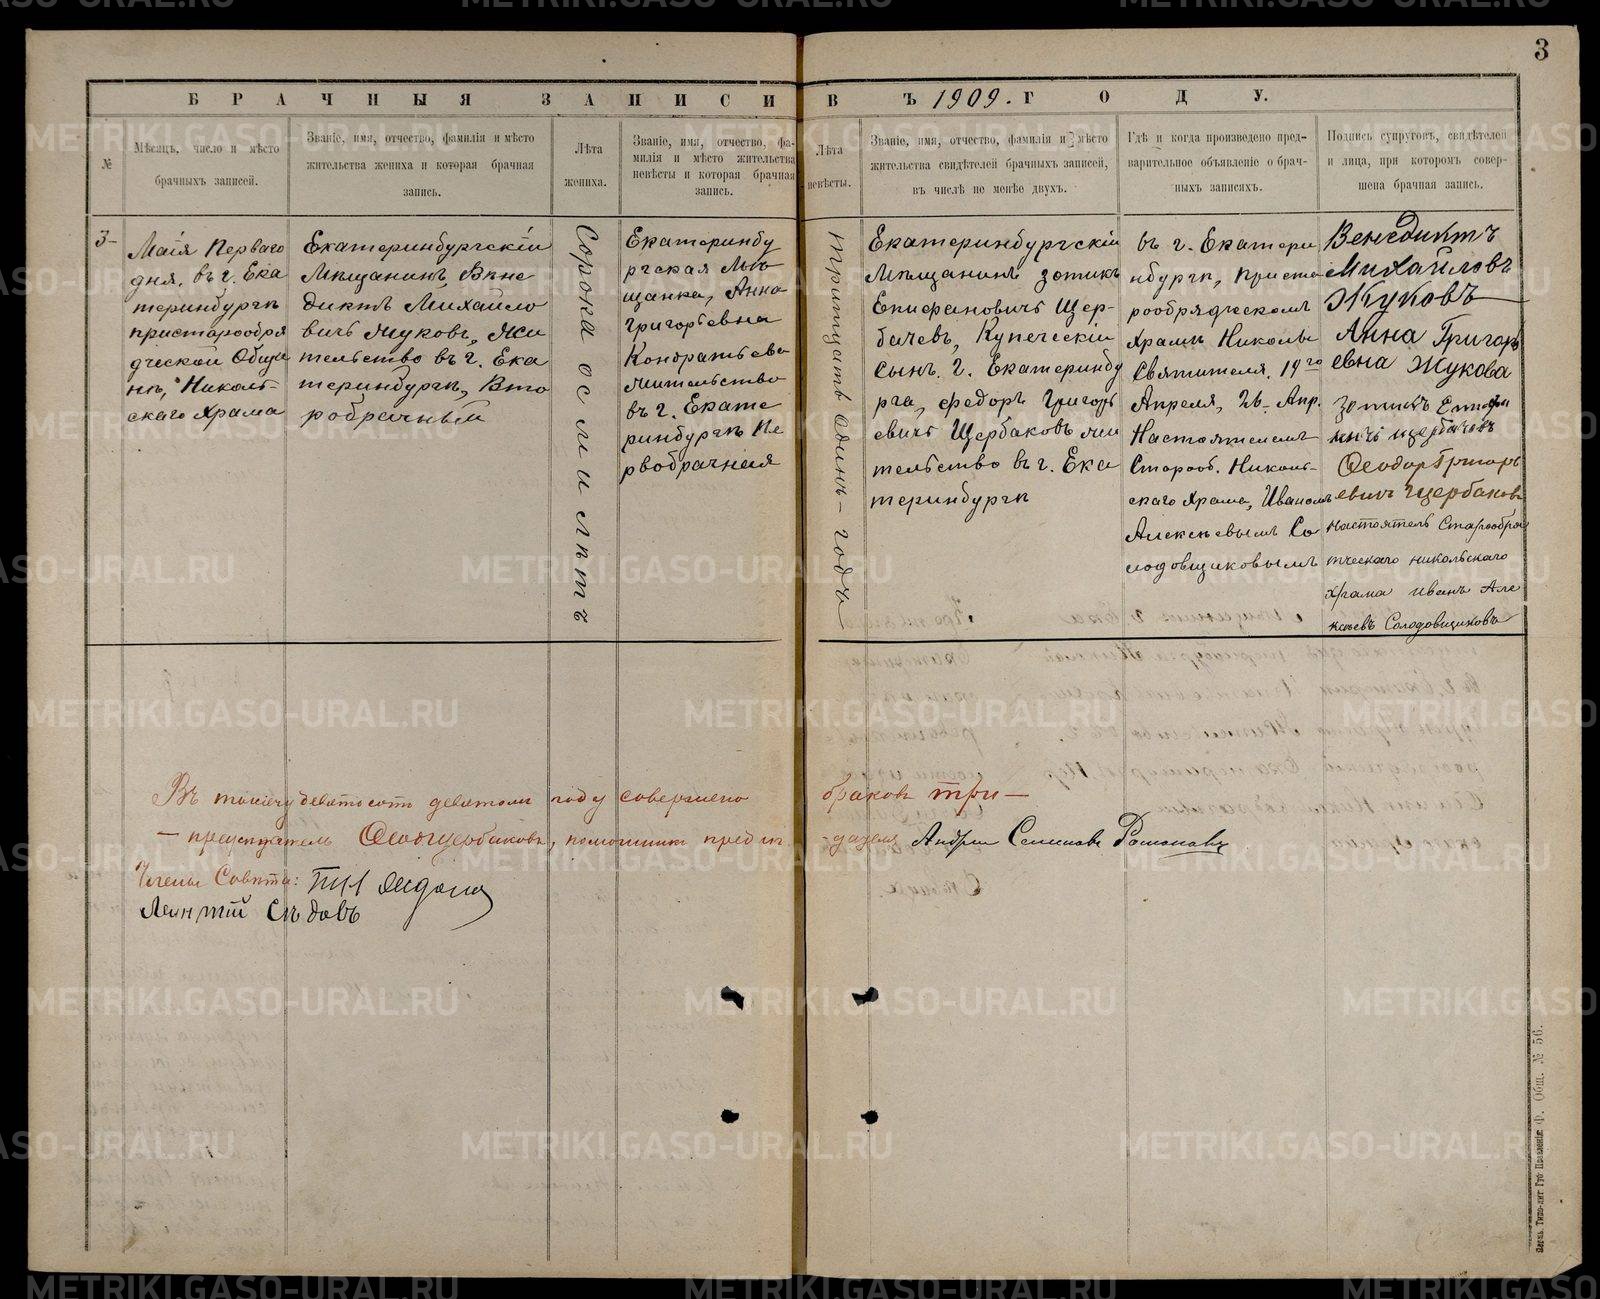 3
БРАЧНЫЯ ЗАПИСИ ВЪ 1909. ГОДУ.
№
Мѣсяцъ, число и мѣсто
брачныхъ записей.
Званіе, имя, отчество, фамилія и мѣсто
жительства жениха и которая брачная
запись.
Лѣта
жениха.
Званіе, имя, отчество, фа-
милія и мѣсто жительства
невѣсты и которая брачная
запись.
Лѣта
невѣсты.
Званіе, имя, отчество, фамилія и мѣсто
жительства свидѣтелей брачныхъ записей,
въ числѣ не менѣе двухъ.
Гдѣ и когда произведено пред-
варительное объявленіе о брач-
ныхъ записяхъ.
Подпись супруговъ, свидѣтелей
и лица, при которомъ совер-
шена брачная запись.
3-
Маія Перваго
дня, въ г. Ека
теринбургѣ
пристарообря
дческой Общи
нѣ, Николь-
скаго Храма
Екатеринбургскій
Мѣщанинъ, Вене
диктъ Михайло
вичъ Жуковъ, Жи
тельство въ г. Ека
теринбургѣ, Вто
робрачный
Сорока осми лѣтъ
Екатеринбу
ргская Мѣ
щанка, Анна
Григорьевна
Кондратьева
жительство
въ г. Екате
ринбургѣ Пе
рвобрачная
тритцать одинъ - годъ
Екатеринбургскій
Мѣщанинъ Зотикъ
Епифановичъ Щер-
бачевъ, Купеческій
Сынъ, г. Екатеринбу
рга, Федоръ Григорь
евичъ Щербаковъ жи
тельство въ г. Ека
теринбургѣ
въ г. Екатери
нбургѣ, приста
рообрядческомъ
Храмѣ Николы
Святителя, 19го
Апреля, 26. Апр.
Настоятелемъ
Старооб. Николь-
скаго Храма, Иваномъ
Алексѣевымъ Со
лодовщиковымъ
Венедиктъ
Михайловъ
Жуковъ
Анна Григорь
евна Жукова
Зотикъ Епифа
нычъ щербачевъ
Феодор Григорь
евич Щербаковъ
Настоятель Старообря
тческаго никольскаго
храма иванъ Але
ксѣевъ Солодовщиковъ
Въ тысячу девятьсотъ девятомъ году совершено браковъ три —
— председатель Феод Щербаковъ, помошник предсѣ-дателя Андрей Семенове Романовъ
Члены Совѣта:
Леинтій Сѣдовъ
Пермь. Типо-лит. Губ. Правленія. Ф. Общ. № 56.
METRIKI.GASO-URAL.RU